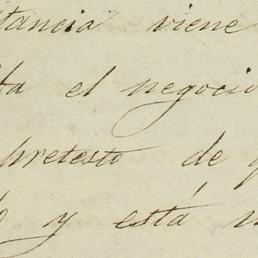 tancia viene
ta el negocio
pretesto de q
o y está